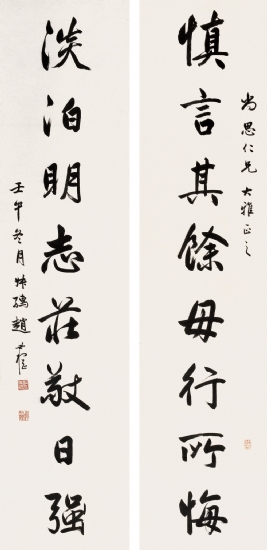 慎言其餘毋行所悔
尚思仁兄大雅正之
淡泊明志莊敬日强
壬午冬月 趙